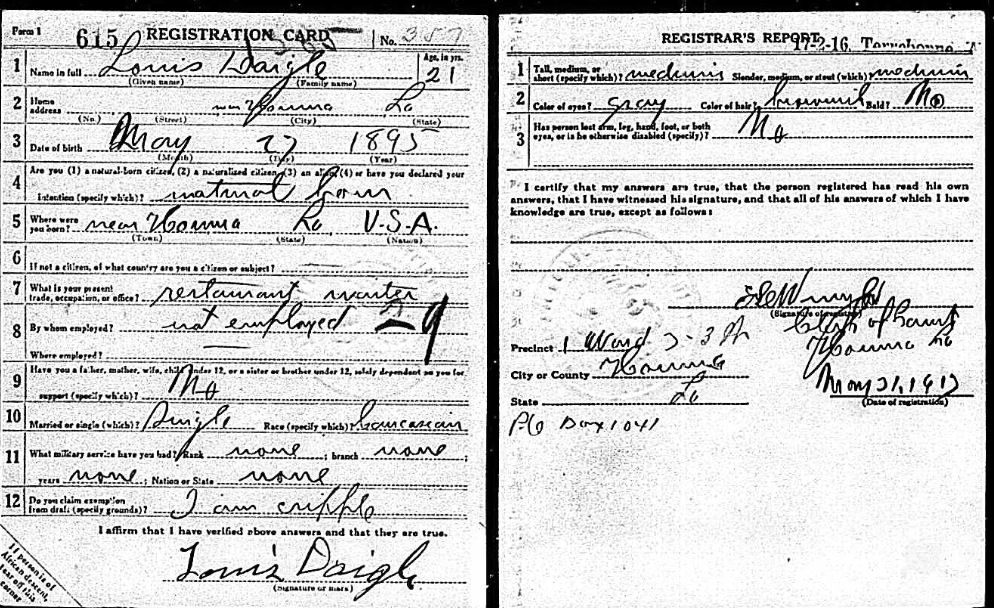 Form 1
615 REGISTRATION CARD No. 357
1 Name in full Louis Daigle Age, in yrs. 21
(Given name) (Family name)
2 Home address near Houma La
(No.) (Street) (City) (State)
3 Date of birth May 27 1895
(Month) (Day) (Year)
4 Are you (1) a natural-born citizen, (2) a naturalized citizen, (3) an alien, (4) or have you declared your
intention (specify which)? natural born
5 Where were you born? near Houma La U.S.A.
(Town) (State) (Nation)
6 If not a citizen, of what country are you a citizen or subject?
7 What is your present trade, occupation, or office? restaurant waiter
8 By whom employed? not employed
Where employed?
9 Have you a father, mother, wife, child under 12, or a sister or brother under 12, solely dependent on you for
support (specify which)? No
10 Married or single (which)? Single Race (specify which)? Caucasian
11 What military service have you had? Rank none ; branch none ;
years none ; Nation or State none
12 Do you claim exemption from draft (specify grounds)? I am cripple
I affirm that I have verified above answers and that they are true.
Louis Daigle
(Signature or mark)
If person is of African descent, tear off this corner
REGISTRAR'S REPORT 17-2-16, Terrebonne,
1 Tall, medium, or short (specify which)? medium Slender, medium, or stout (which)? medium
2 Color of eyes? gray Color of hair? brown Bald? No
3 Has person lost arm, leg, hand, foot, or both eyes, or is he otherwise disabled (specify)? No
I certify that my answers are true, that the person registered has read his own
answers, that I have witnessed his signature, and that all of his answers of which I have
knowledge are true, except as follows:
(Signature of registrar)
Clerk of Court
Houma La
Precinct 1 Ward 3
City or County Houma
State La
May 31, 1917
(Date of registration)
PO Box 1041